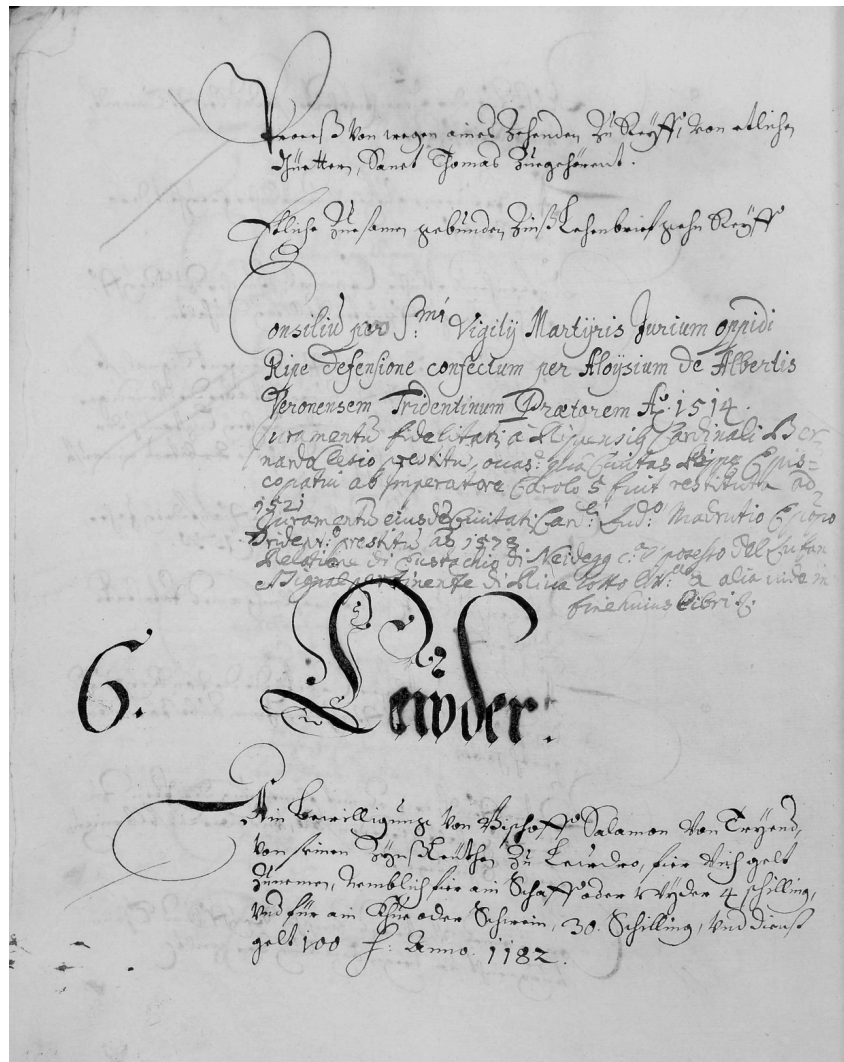 Proceß von wegen aines Zehenden zu Reÿff, von etlichen
Güettern, Sanct Thomas zuegehörent.
Etliche Zuesamen gebunden Zinß Lehenbrief gehn Reÿff
Consiliũ pro S:mi Vigilij Martÿris Jurium oppidi
Ripe defensione confectum per Aloÿsium de Albertis
Veronensem Tridentinum Prætorem Aº. 1514.
Juramentũ fidelitatis a Ripensib. Cardinali Ber-
nardo Clesio prestitũ, occas: qua Civitas Ripæ Epis=
copatui ab Imperatore Carolo 5 fuit restituta ad
1521
Juramentũ eiusdē Civitatis Card:li Lud:o Madrutio Epõpo
Trident:o prestitũ aº 1578
Relatione di Eustachio di Neidegg c:a 'l possesso del
pertinente di Riva sotto et alia vide in
fine huius Libri
6. Leüder.
Ain Bewilligung von Bischoff Salamon von Tryend,
von seinen Zÿnßleüthen zu Leudro, für Vich gelt
Zunemen, Nemblich für ain Schaff oder Wyder 4 schilling,
Vnd für ain Khue oder Schwein, 30. Schilling, Vnd dienst
gelt 100 Anno. 1182.